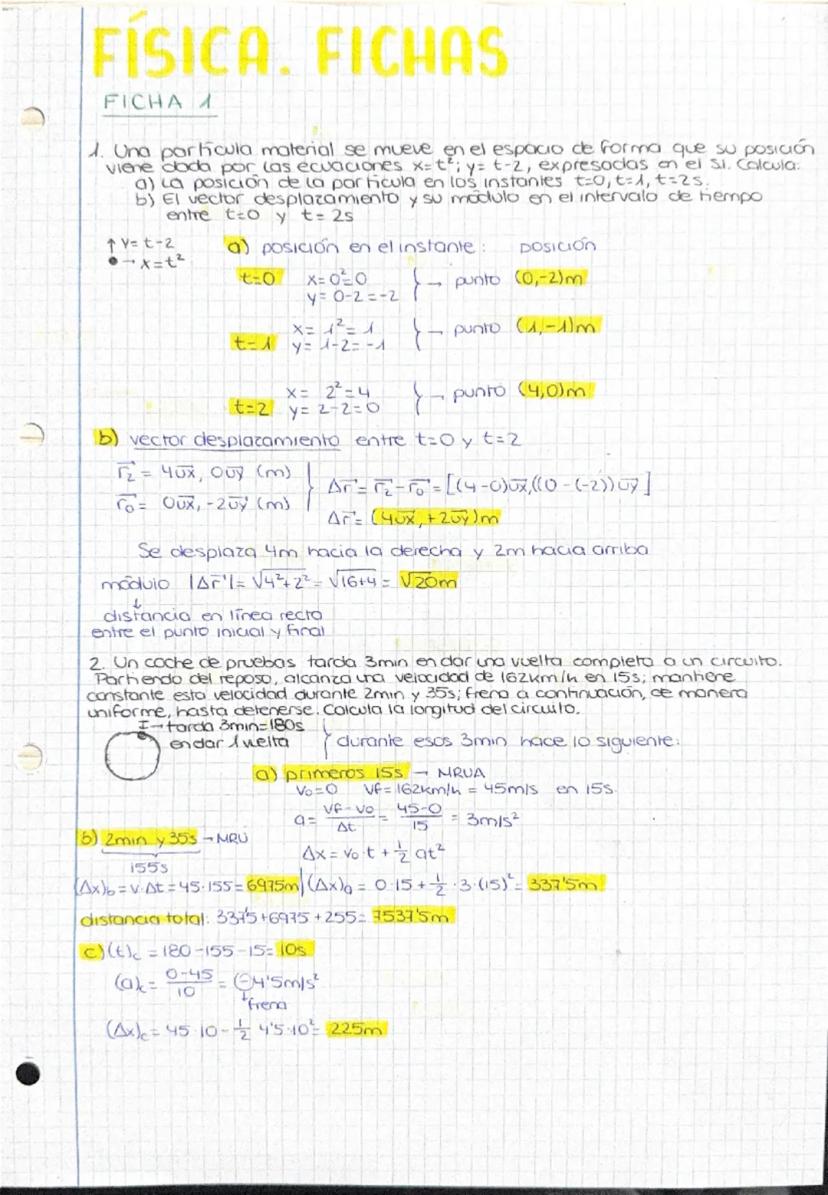 FÍSICA. FICHAS
FICHA 1
1. Una partícula material se mueve en el espacio de forma que su posición
viene dada por las ecuaciones x=t²; y= t-2, expresadas en el SI. Calcula:
a) La posición de la partícula en los instantes t=0, t=1, t=2s.
b) El vector desplazamiento y su módulo en el intervalo de tiempo
entre t=0 y t= 2s
↑ y= t-2
• → x=t²
a) posición en el instante: posición
t=0 x= 0²=0
y= 0-2=-2 } → punto (0,-2)m
t=1 x= 1²= 1
y= 1-2= -1 } → punto (1,-1)m
t=2 x= 2²=4
y= 2-2=0 } → punto (4,0)m
b) vector desplazamiento entre t=0 y t=2
r₂ = 4ux, 0uy (m)
r₀ = 0ux, -2uy (m) } Δr = r₂ - r₀ = [(4-0)ux,((0-(-2))uy]
Δr = (4ux, +2uy)m
Se desplaza 4m hacia la derecha y 2m hacia arriba
módulo |Δr| = √4²+2² = √16+4 = √20m
↓
distancia en línea recta
entre el punto inicial y final
2. Un coche de pruebas tarda 3min en dar una vuelta completa a un circuito.
Partiendo del reposo, alcanza una velocidad de 162km/h en 15s; mantiene
constante esta velocidad durante 2min y 35s; frena a continuación, de manera
uniforme, hasta detenerse. Calcula la longitud del circuito.
I→ tarda 3min=180s
en dar 1 vuelta { durante esos 3min hace lo siguiente:
a) primeros 15s → MRUA
V₀=0 Vf= 162km/h = 45m/s en 15s.
a= Vf-V₀/Δt = 45-0/15 = 3m/s²
b) 2min y 35s → MRU
155s
Δx = V₀·t + 1/2 at²
(Δx)b = v·Δt = 45·155 = 6975m | (Δx)a = 0·15 + 1/2 · 3·(15)² = 337'5m
distancia total: 337'5+6975+255= 7537'5m
c) (t)c = 180-155-15= 10s
(a)c = 0-45/10 = -4'5m/s²
↓ frena
(Δx)c = 45·10 - 1/2 4'5·10² = 225m